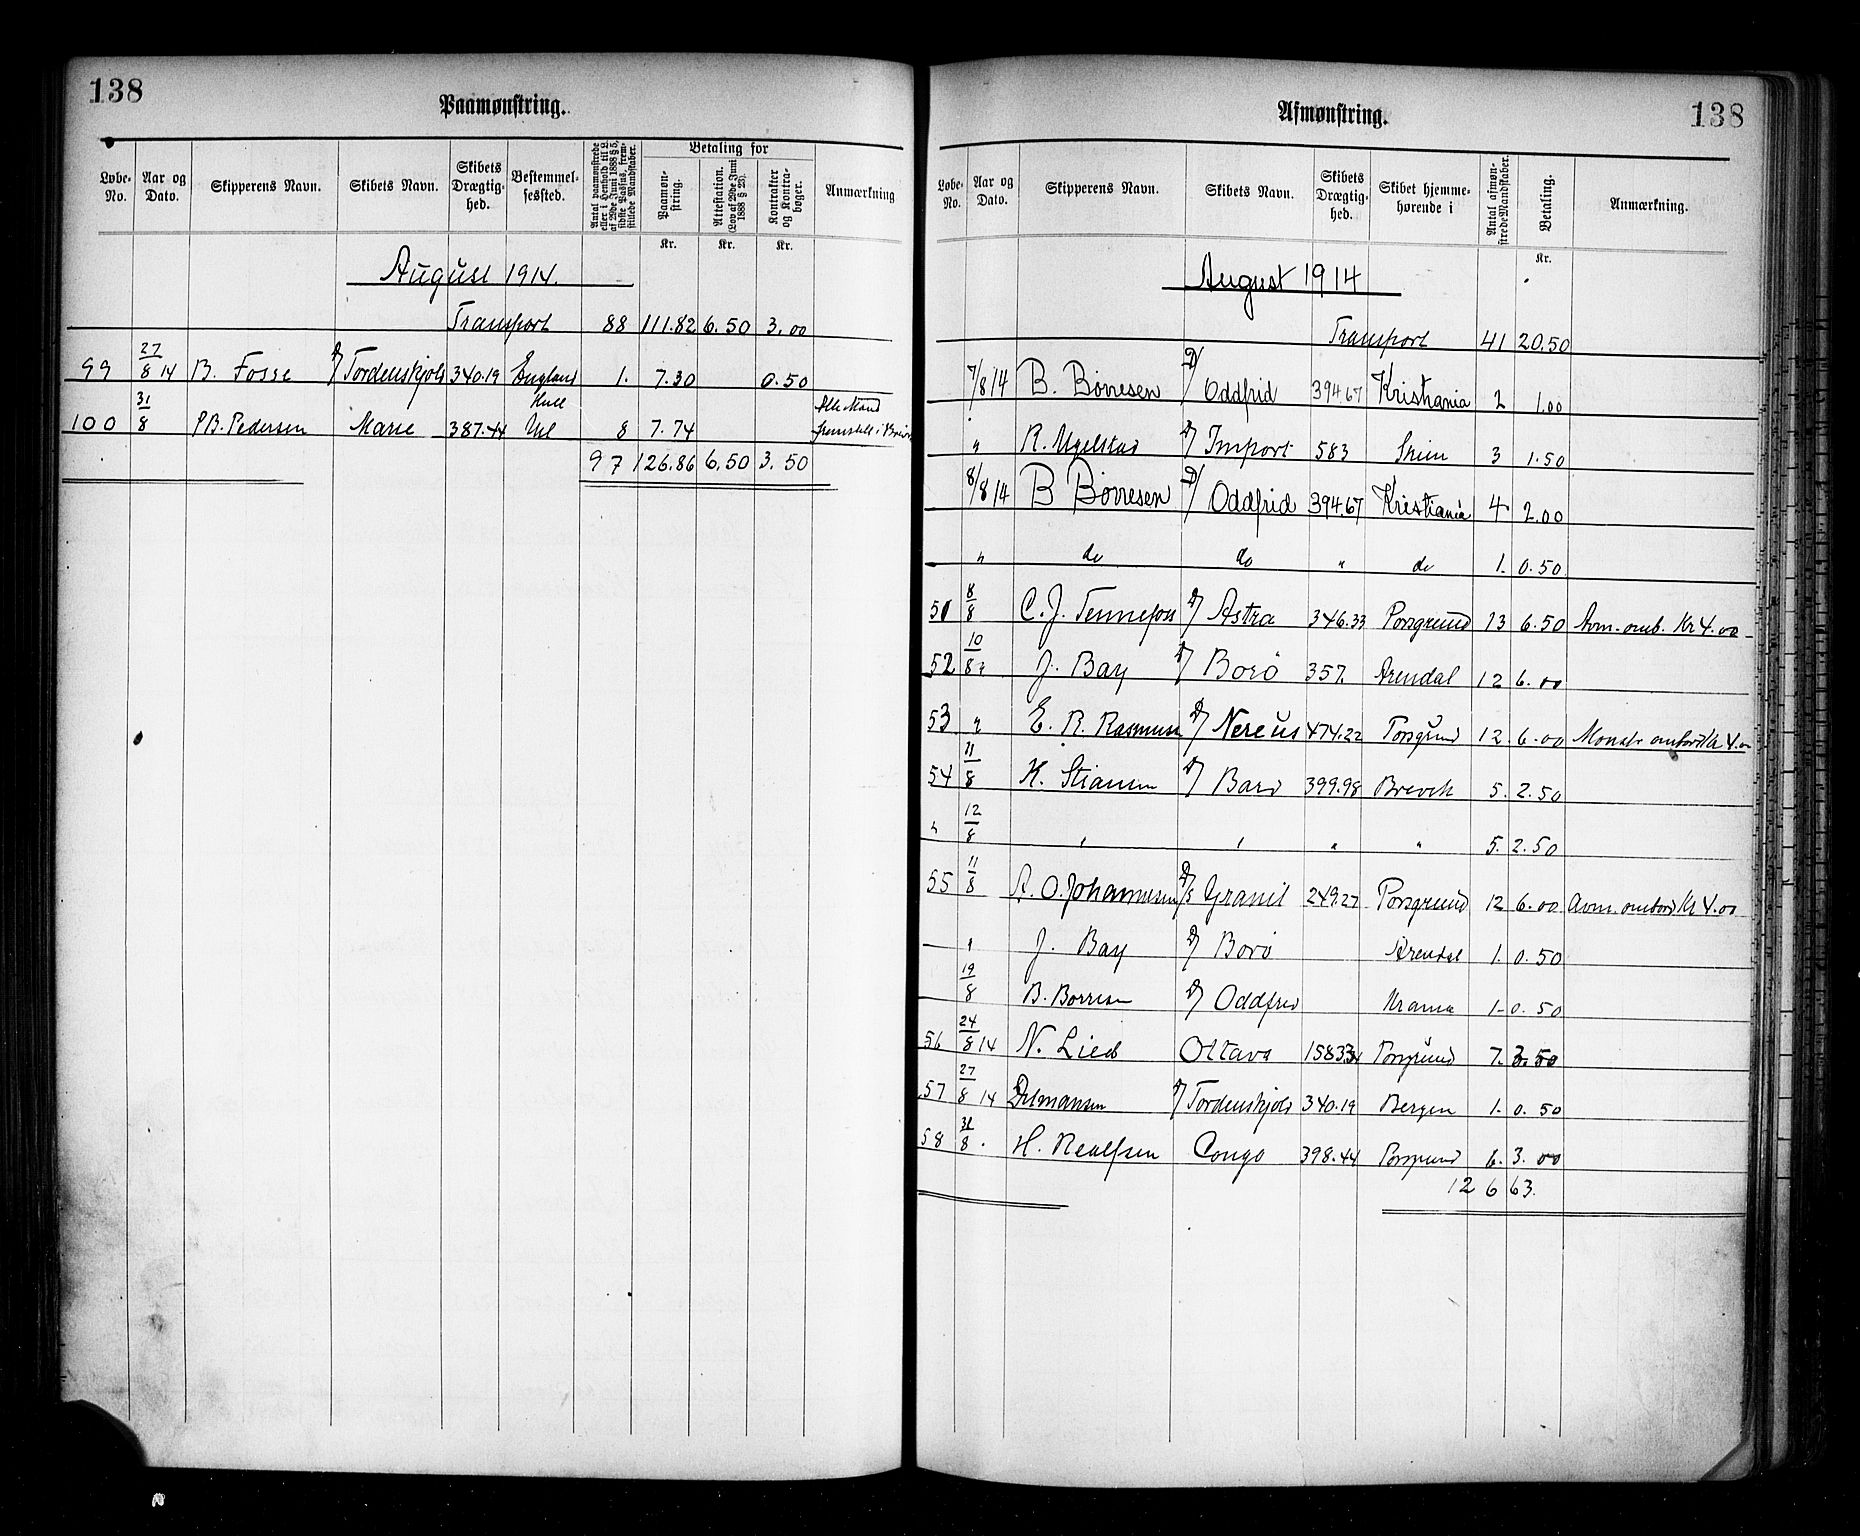 138
Paamønstring.
Løbe-No. Aar og Dato. Skipperens Navn. Skibets Navn. Skibets Drægtighed. Bestemmelsessted. Antal paamønstrede eller i Henhold til L. af 29de Juni 1888 § 5, sidste Passus, fremstillede Mandskaber. Betaling for Paamønstring. Attestation. (Lov af 29de Juni 1888 § 23). Kontrakter og Kontrabøger. Anmærkning
Kr. Kr. Kr.
August 1914.
Transport 88 111.82 6.50 3.00
99 27/8 14 B. Fosse D/ Tordenskjold 340.19 England 1. 7.30 0.50
100 31/8 P.B. Pedersen Marie 387.44 Hull 8 7.74 Alle Mand fremstill. i
97 126.86 6.50 3.50
138
Afmønstring.
Løbe-No. Aar og Dato. Skipperens Navn. Skibets Navn. Skibets Drægtighed. Skibet hjemmehørende i Antal afmønstrede Mandskaber. Betaling. Anmærkning.
Kr.
August 1914
Transport 41 20.50
7/8 14 B. Børresen D/ Oddfrid 394.67 Kristiania 2 1.00
" R. Ugelstad D/ Import 583 Skien 3 1.50
8/8 14 B Børresen D/ Oddfrid 394.67 Kristiania 4 2.00
" do do " do 1. 0.50
51 8/8 C. J. Tennefoss D/ Astra 346.33 Porsgrund 13 6.50 Avm. omb. Kr 4.00
52 10/8 J. Bay D/ Borø 357. Arendal 12 6.00
53 " E. R. Rasmusen D/ Nereus 474.22 Porsgrund 12 6.00 Mønstr ombord Kr 4.00
54 11/8 K. Stiansen D/ Bard 399.98 Brevik 5. 2.50
" 12/8 " " " " 5. 2.50
55 11/8 A. O. Johannesen D/S Granit 249.27 Porsgrund 12 6.00 Avm. ombord Kr 4.00
" J. Bay D/ Borø Arendal 1. 0.50
19/8 B. Børresen D/ Oddfrid Krania 1. 0.50
56 24/8 14 N. Lied Ottava 1583.34 Porsgrund 7. 3.50
57 27/8 14 D/ Tordenskjold 340.19 Bergen 1. 0.50
58 31/8 . H. Realfsen Congo 398.44 Porsgrund 6. 3.00
126 63.